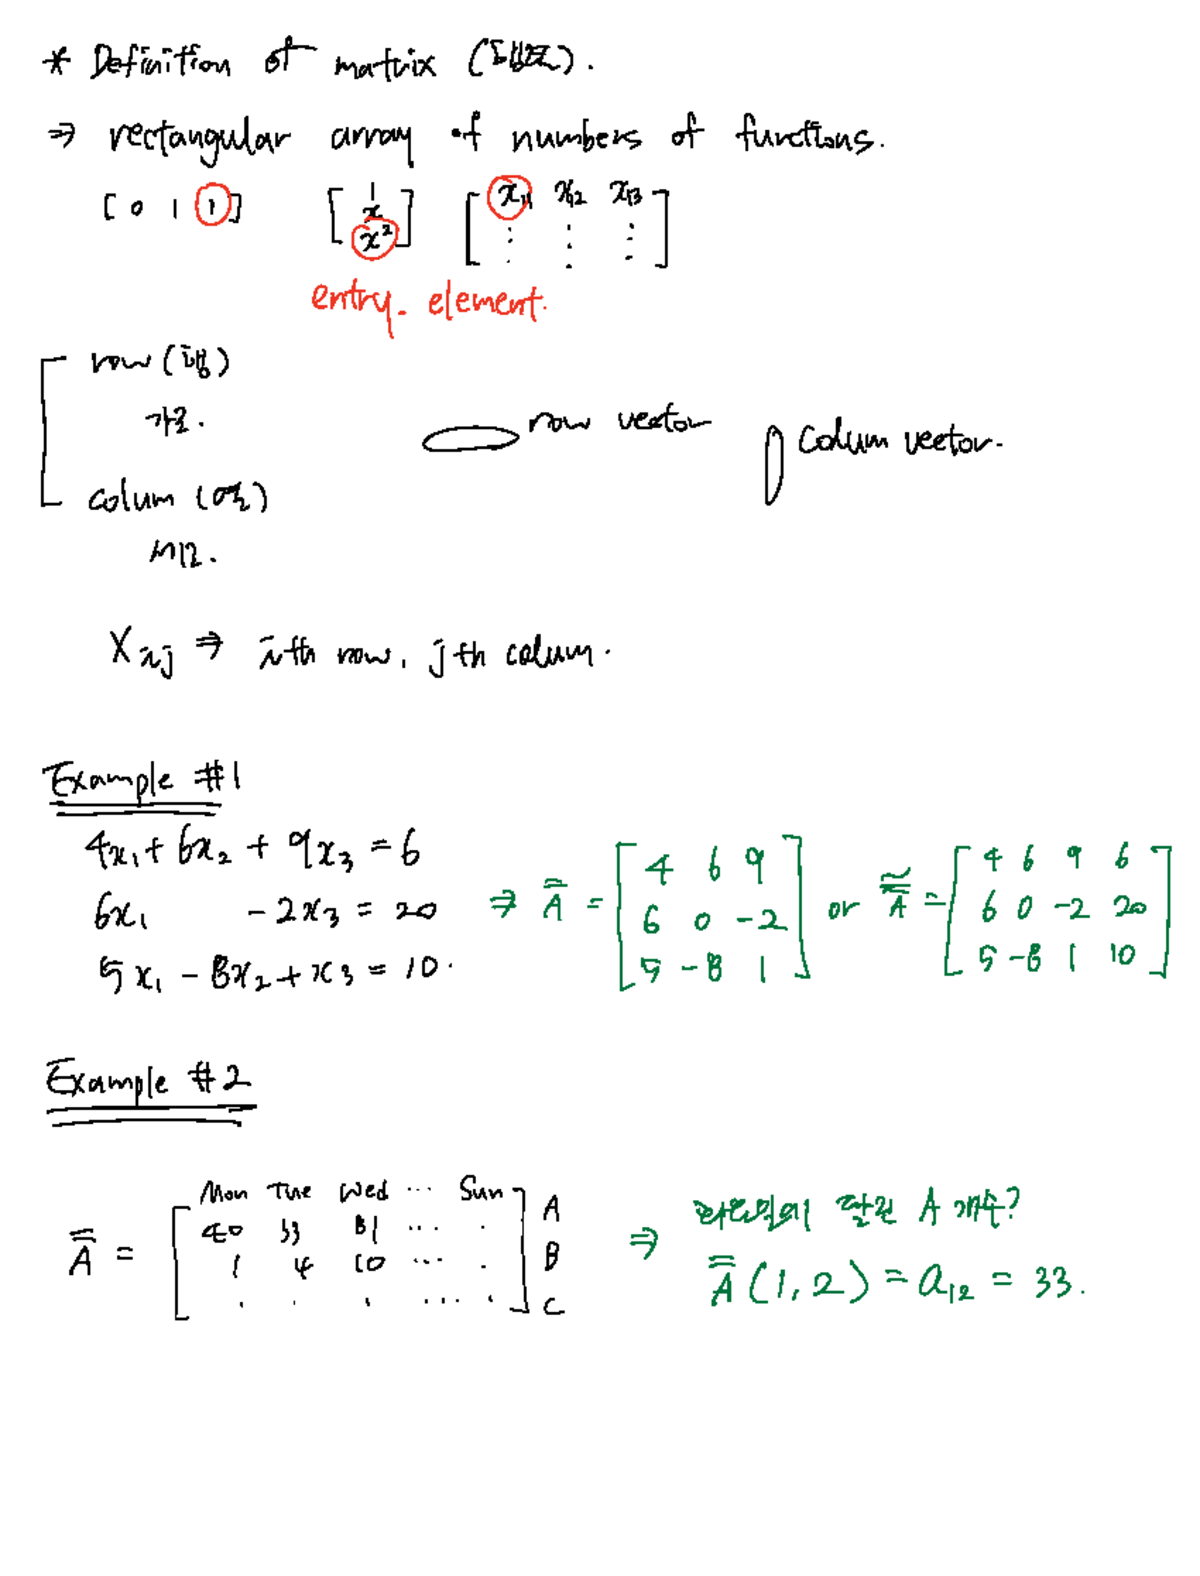 * Definition of matrix (행렬).
⇒ rectangular array of numbers of functions.
[ 0 1 1 ] [ 1 x x² ] [ x₁₁ x₁₂ x₁₃ ⋮ ⋮ ⋮ ]
entry. element.
row (행)
가로.
row vector
colum vector.
colum (열)
세로.
X ij ⇒ i th row, j th colum.
Example #1
4x₁ + 6x₂ + 9x₃ = 6
6x₁ - 2x₃ = 20
5x₁ - 8x₂ + x₃ = 10.
⇒ A = [ 4 6 9
6 0 -2
5 -8 1 ]
or Ã = [ 4 6 9 6
6 0 -2 20
5 -8 1 10 ]
Example #2
Mon Tue Wed ... Sun
A = [ 40 33 81 ... . A
1 4 10 ... . B
. . . ... . ] C
⇒ 화요일에 팔린 A 개수?
A (1, 2) = a₁₂ = 33.